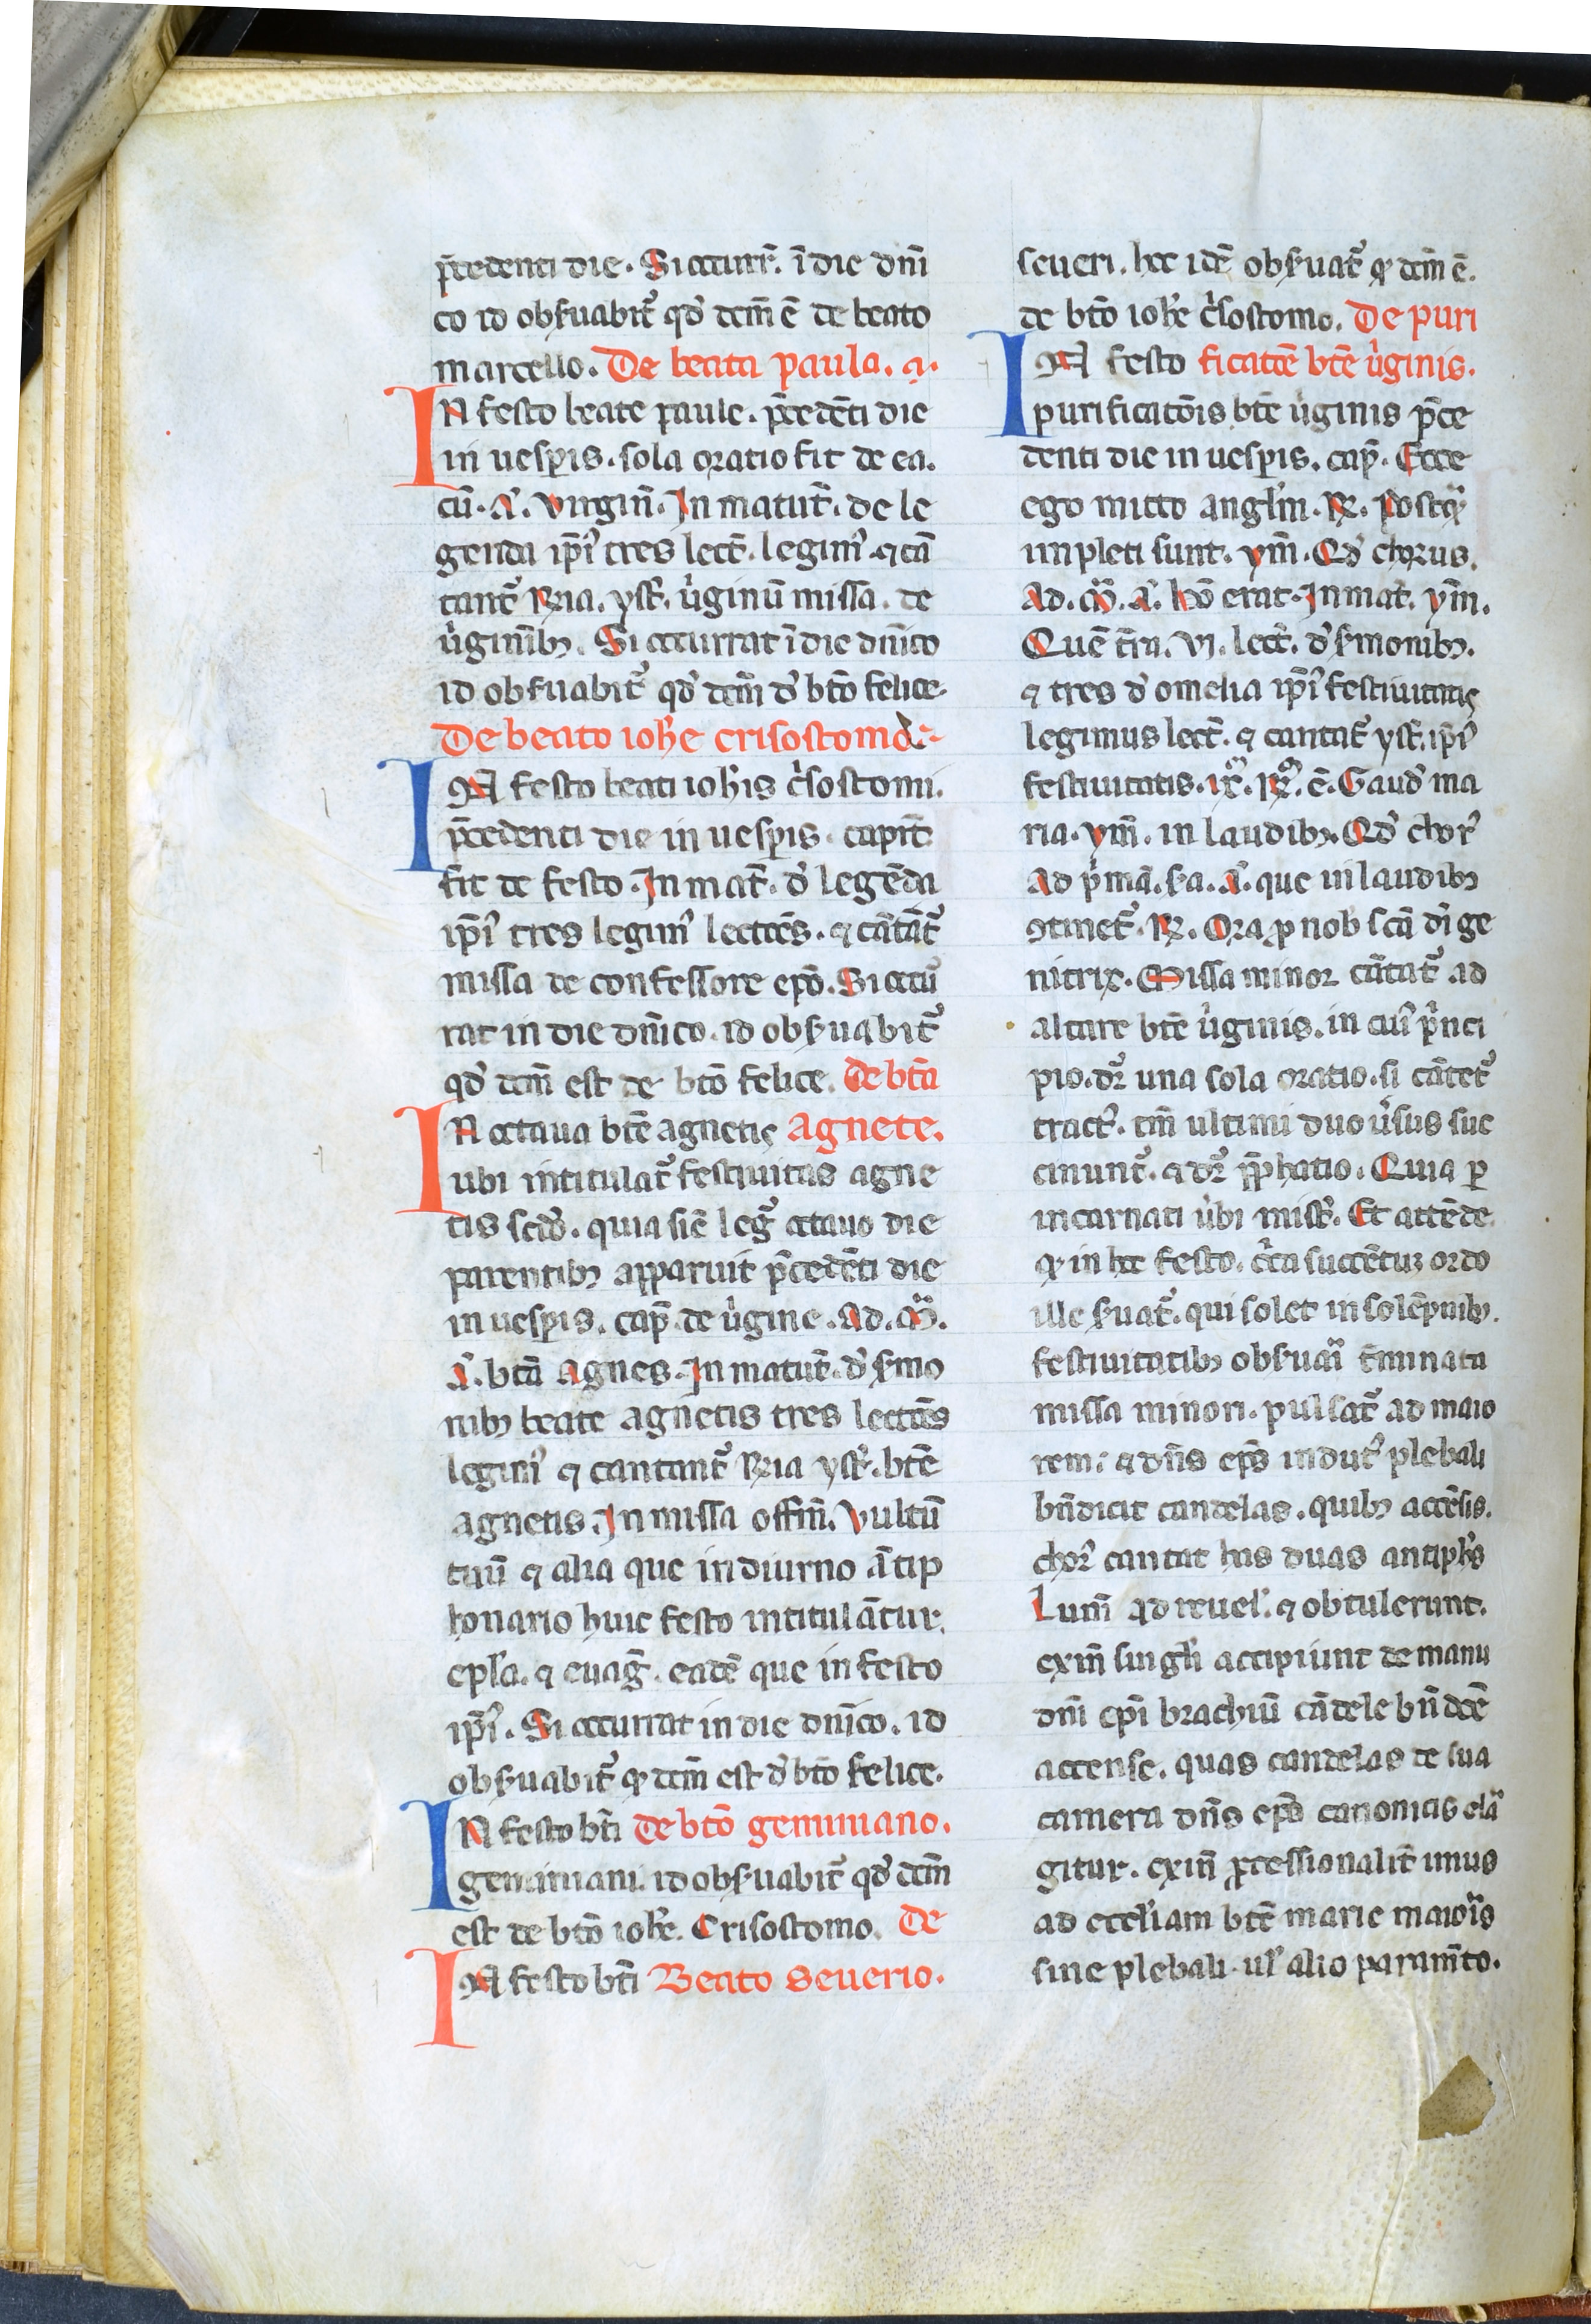 p̄cedenti die. Si occurr̄. ī die dn̄i
co id obẜuabit᷑ qd̓ dcm̄ ē de beato
marcello. De beata paula. a.
IN festo beate paule. p̄cedēti die
in uesp̱is. sola oratio fit de ea.
cū. a᷑. virgin̄. In matut̄. de le
genda ip̄i᷑ tres lect̄. legim᷑. ⁊ cā
tant᷑ R̄ia. yst᷑. ūginū missa. de
ūginib⁊. Si occurrat ī die dn̄ico
id obẜuabit᷑ qd̓ dcm̄ d̓ bt̄o felice.
De beato ioh̄e crisostomo.
IN festo beati ioh̄is c᷑sostomi.
p̄cedenti die in uesp̱is. capit̄
fit de festo. In mat̄. d̓ legēda
ip̄i᷑ tres legim᷑ lectōēs. ⁊ cātāt᷑
missa de confessore ep̄o. Si occū
rat in die dn̄ico. id obẜuabit᷑
qd̓ dcm̄ est de bt̄o felice. De bt̄a
IN octaua bt̄e agnetis Agnete.
ubi intitulat᷑ festiuitas agne
tis scd̄o. quia sic̄ leg᷑ octauo die
parentib⁊ apparuit p̄cedēti die
in uesp̱is. cap̄. de ūgine. Ad. M̄.
a᷑. bt̄a Agnes. In matut̄. d̓ ẜmo
nib⁊ beate agnetis tres lectōēs
legim᷑ ⁊ cantant᷑ R̄ia yst᷑. bt̄e
agnetis. In missa offm̄. Vultū
tuū ⁊ alia que in diurno ātip
honario huic festo intitulātur.
epl̄a. ⁊ euag̓. eadē que in festo
ip̄i᷑. Si occurrat in die dn̄ico. id
obẜuabit᷑ ꝙ dcm̄ est d̓ bt̄o felice.
IN festo bt̄i de bt̄o geminiano.
geminiani. id obẜuabit᷑ qd̓ dcm̄
est de bt̄o ioh̄e. Crisostomo. De
IN festo bt̄i Beato seuerio.
seueri. hoc idē obẜuat᷑ ꝙ dcm̄ ē.
de bt̄o ioh̄e c᷑sostomo. De puri
IN festo ficatōē bt̄e ūginis.
purificatōis bt̄e ūginis p̄ce
denti die in uesp̱is. cap̄. Ecce
ego mitto angl̄m. R̄. Postꝙ᷑
impleti sunt. ym̄. Qd̓ chorus.
Ad. M̄. a᷑. hō erat. In mat̄. ym̄.
Quē tr̄a. vj. lect̄. d̓ ẜmonib⁊.
⁊ tres d̓ omelia ip̄i᷑ festiuitatis
legimus lect̄. ⁊ cantat᷑ yst᷑. ip̄i᷑
festiuitatis. ix᷑. R̄. ē. Gaud̓ ma
ria. ym̄. in laudib⁊. Qd̓ chor᷑
Ad p᷑mā. ẜa. a᷑. que in laudib⁊
ꝯtinet᷑. R̄. Ora ꝓ nob̓ scā di̓ ge
nitrix. Missa minor cātat᷑ ad
altare bt̄e ūginis. in cui᷑ p᷑nci
pio. dr̄ una sola oratio. si cātet᷑
tract᷑. tm̄ ultimi duo ūsus suc
cinunt᷑. ⁊ dr̄ p̄phatio. Quia ꝑ
incarnati ūbi mist̄. Et attēde
ꝙ in hoc festo. c᷑ca succētur ordo
ille ẜuat᷑. qui solet in solēpnib⁊.
festiuitatib⁊ obẜuari t̄minata
missa minori. pulsat᷑ ad maio
rem: ⁊ dn̄s ep̄s indut᷑ plebali
bn̄dicit candelas. quib⁊ accēsis.
chor᷑ cantat has duas antiph̄s
Lum̄ ad reuel̓. ⁊ obtulerunt.
exin̄ singl̄i accipiunt de manu
dn̄i ep̄i brachiū cādele bn̄dcē
accense. quas candelas de sua
camera dn̄s ep̄s canonicis ela᷑
gitur. exin̄ ꝓcessionalit̄ imus
ad eccl̄iam bt̄e marie maioris
sine plebali. ul̓ alio param̄to.